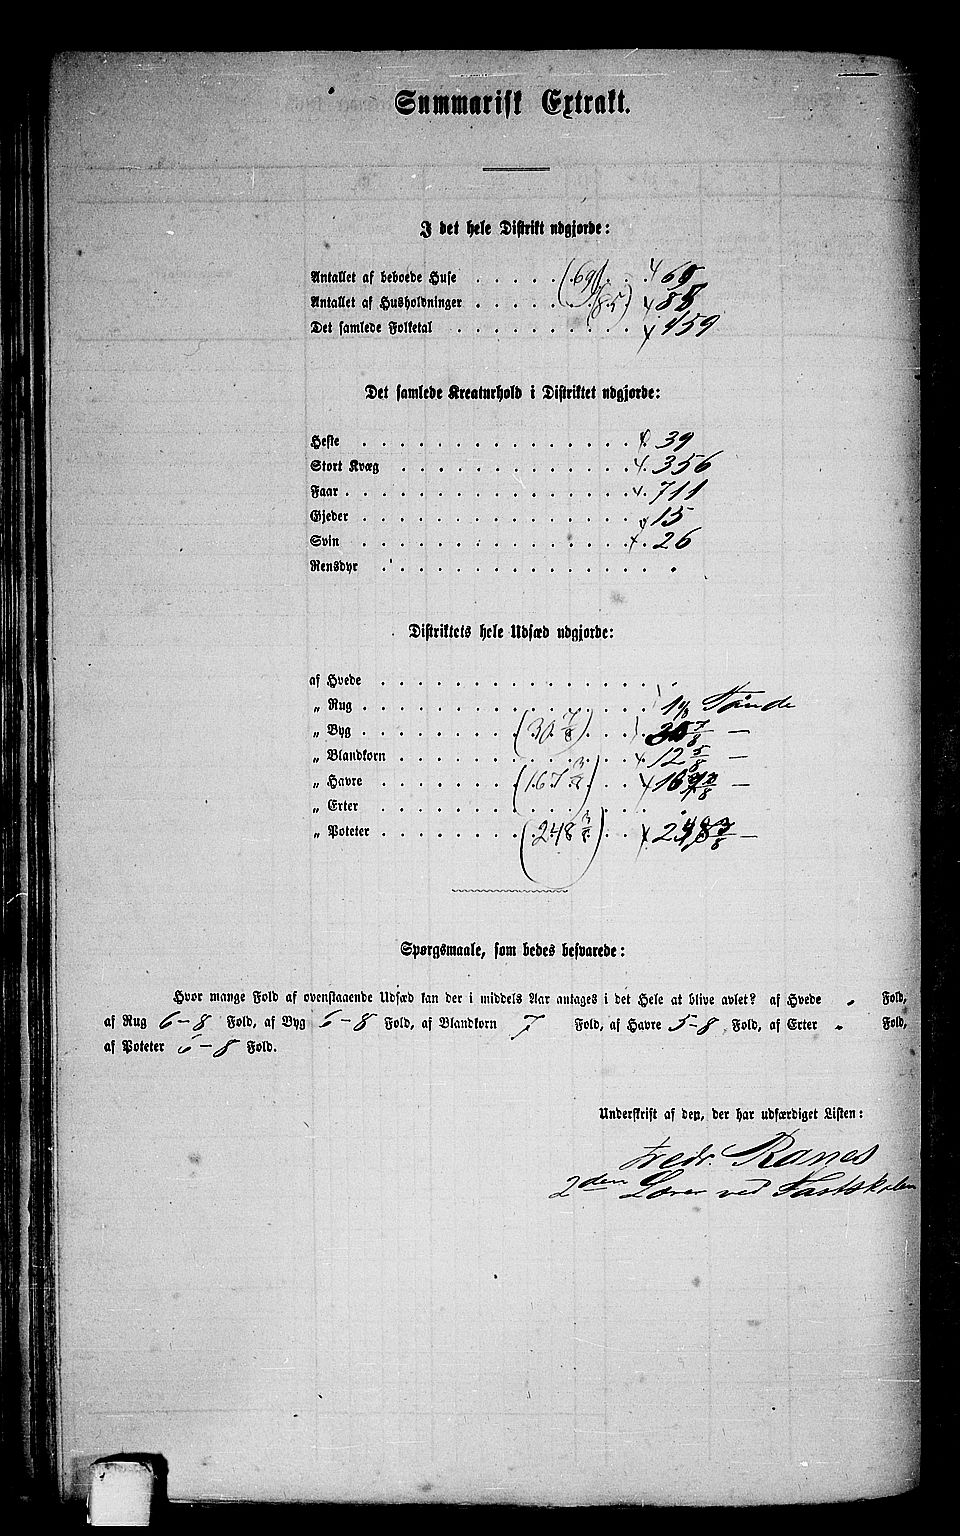 Summarisk Extrakt.
I det hele Distrikt udgjorde:
Antallet af beboede Huse . . . . . (69) . .
Antallet af Husholdninger . . . . . (85) 88
Det samlede Folketal . . . . . . . . 459
Det samlede Kreaturhold i Distriktet udgjorde:
Heste . . . . . . . . 39
Stort Kvæg . . . . . . . . 356
Faar . . . . . . . . 711
Gjeder . . . . . . . . 15
Svin . . . . . . . . 26
Rensdyr . . . . . . . .
Distriktets hele Udsæd udgjorde:
af Hvede . . . . . . . .
„ Rug . . . . . . . . 1 1/8 Tønde
„ Byg . . . . (30 7/8) . . 30 7/8 —
„ Blandkorn . . . . . . . . 12 5/8 —
„ Havre . . . . (167 3/8) . . —
„ Erter . . . . . . . .
„ Poteter . . . . (248 3/8) . . —
Spørgsmaale, som bedes besvarede:
Hvor mange Fold af ovenstaaende Udsæd kan der i middels Aar antages i det Hele at blive avlet? af Hvede „ Fold,
af Rug 6-8 Fold, af Byg 6-8 Fold, af Blandkorn 7 Fold, af Havre 5-8 Fold, af Erter „ Fold,
af Poteter 6-8 Fold.
Underskrift af den, der har udfærdiget Listen:
Fredr. Ranes
2den Lærer ved Fastskolen